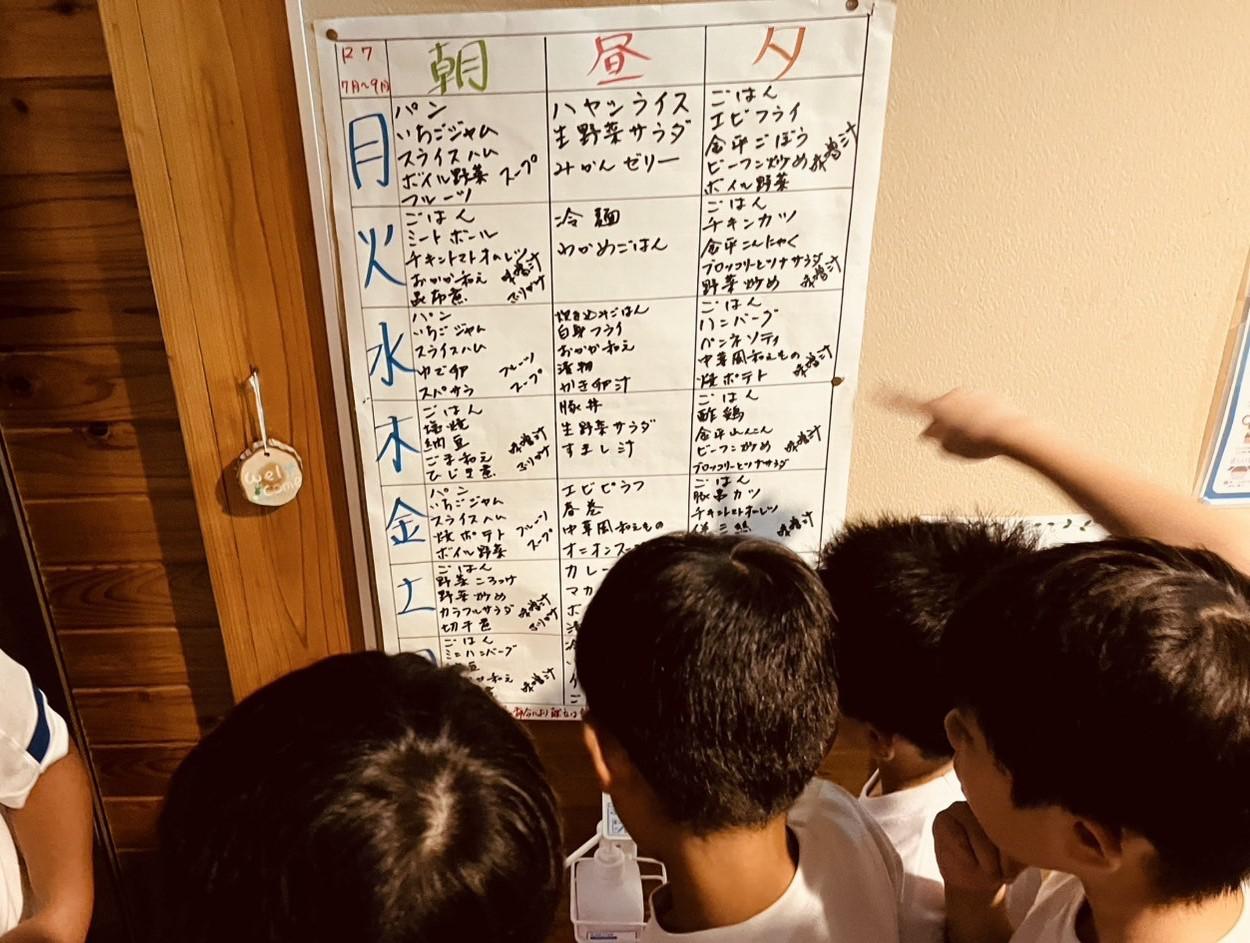 R7
7月〜9月
朝
昼
夕
月
パン
いちごジャム
スライスハム
ボイル野菜 スープ
フルーツ
ハヤシライス
生野菜サラダ
みかんゼリー
ごはん
エビフライ
金平ごぼう
ビーフン炒め 味噌汁
ボイル野菜
火
ごはん
ミートボール
チキントマトオムレツ
おかか和え 味噌汁
昆布煮 ふりかけ
冷麺
わかめごはん
ごはん
チキンカツ
金平こんにゃく
ブロッコリーとツナサラダ
野菜炒め 味噌汁
水
パン
いちごジャム
スライスハム
ゆで卵 フルーツ
スパサラ スープ
炊き込みごはん
白身フライ
おかか和え
漬物
かき卵汁
ごはん
ハンバーグ
ペンネソティ
中華風和えもの 味噌汁
焼ポテト
木
ごはん
塩焼
納豆 味噌汁
ごま和え ふりかけ
ひじき煮
豚丼
生野菜サラダ
すまし汁
ごはん
酢鶏
金平れんこん
ビーフン炒め 味噌汁
ブロッコリーとツナサラダ
金
パン
いちごジャム
スライスハム フルーツ
焼ポテト スープ
ボイル野菜
エビピラフ
春巻
中華風和えもの
オニオンスー
ごはん
チキントマトオムレツ
味噌汁
土
ごはん
野菜コロッケ
野菜炒め
カラフルサラダ 味噌汁
切干煮 ふりかけ
カレー
マカ
ごはん
ミニハンバーグ
味噌汁
welcome